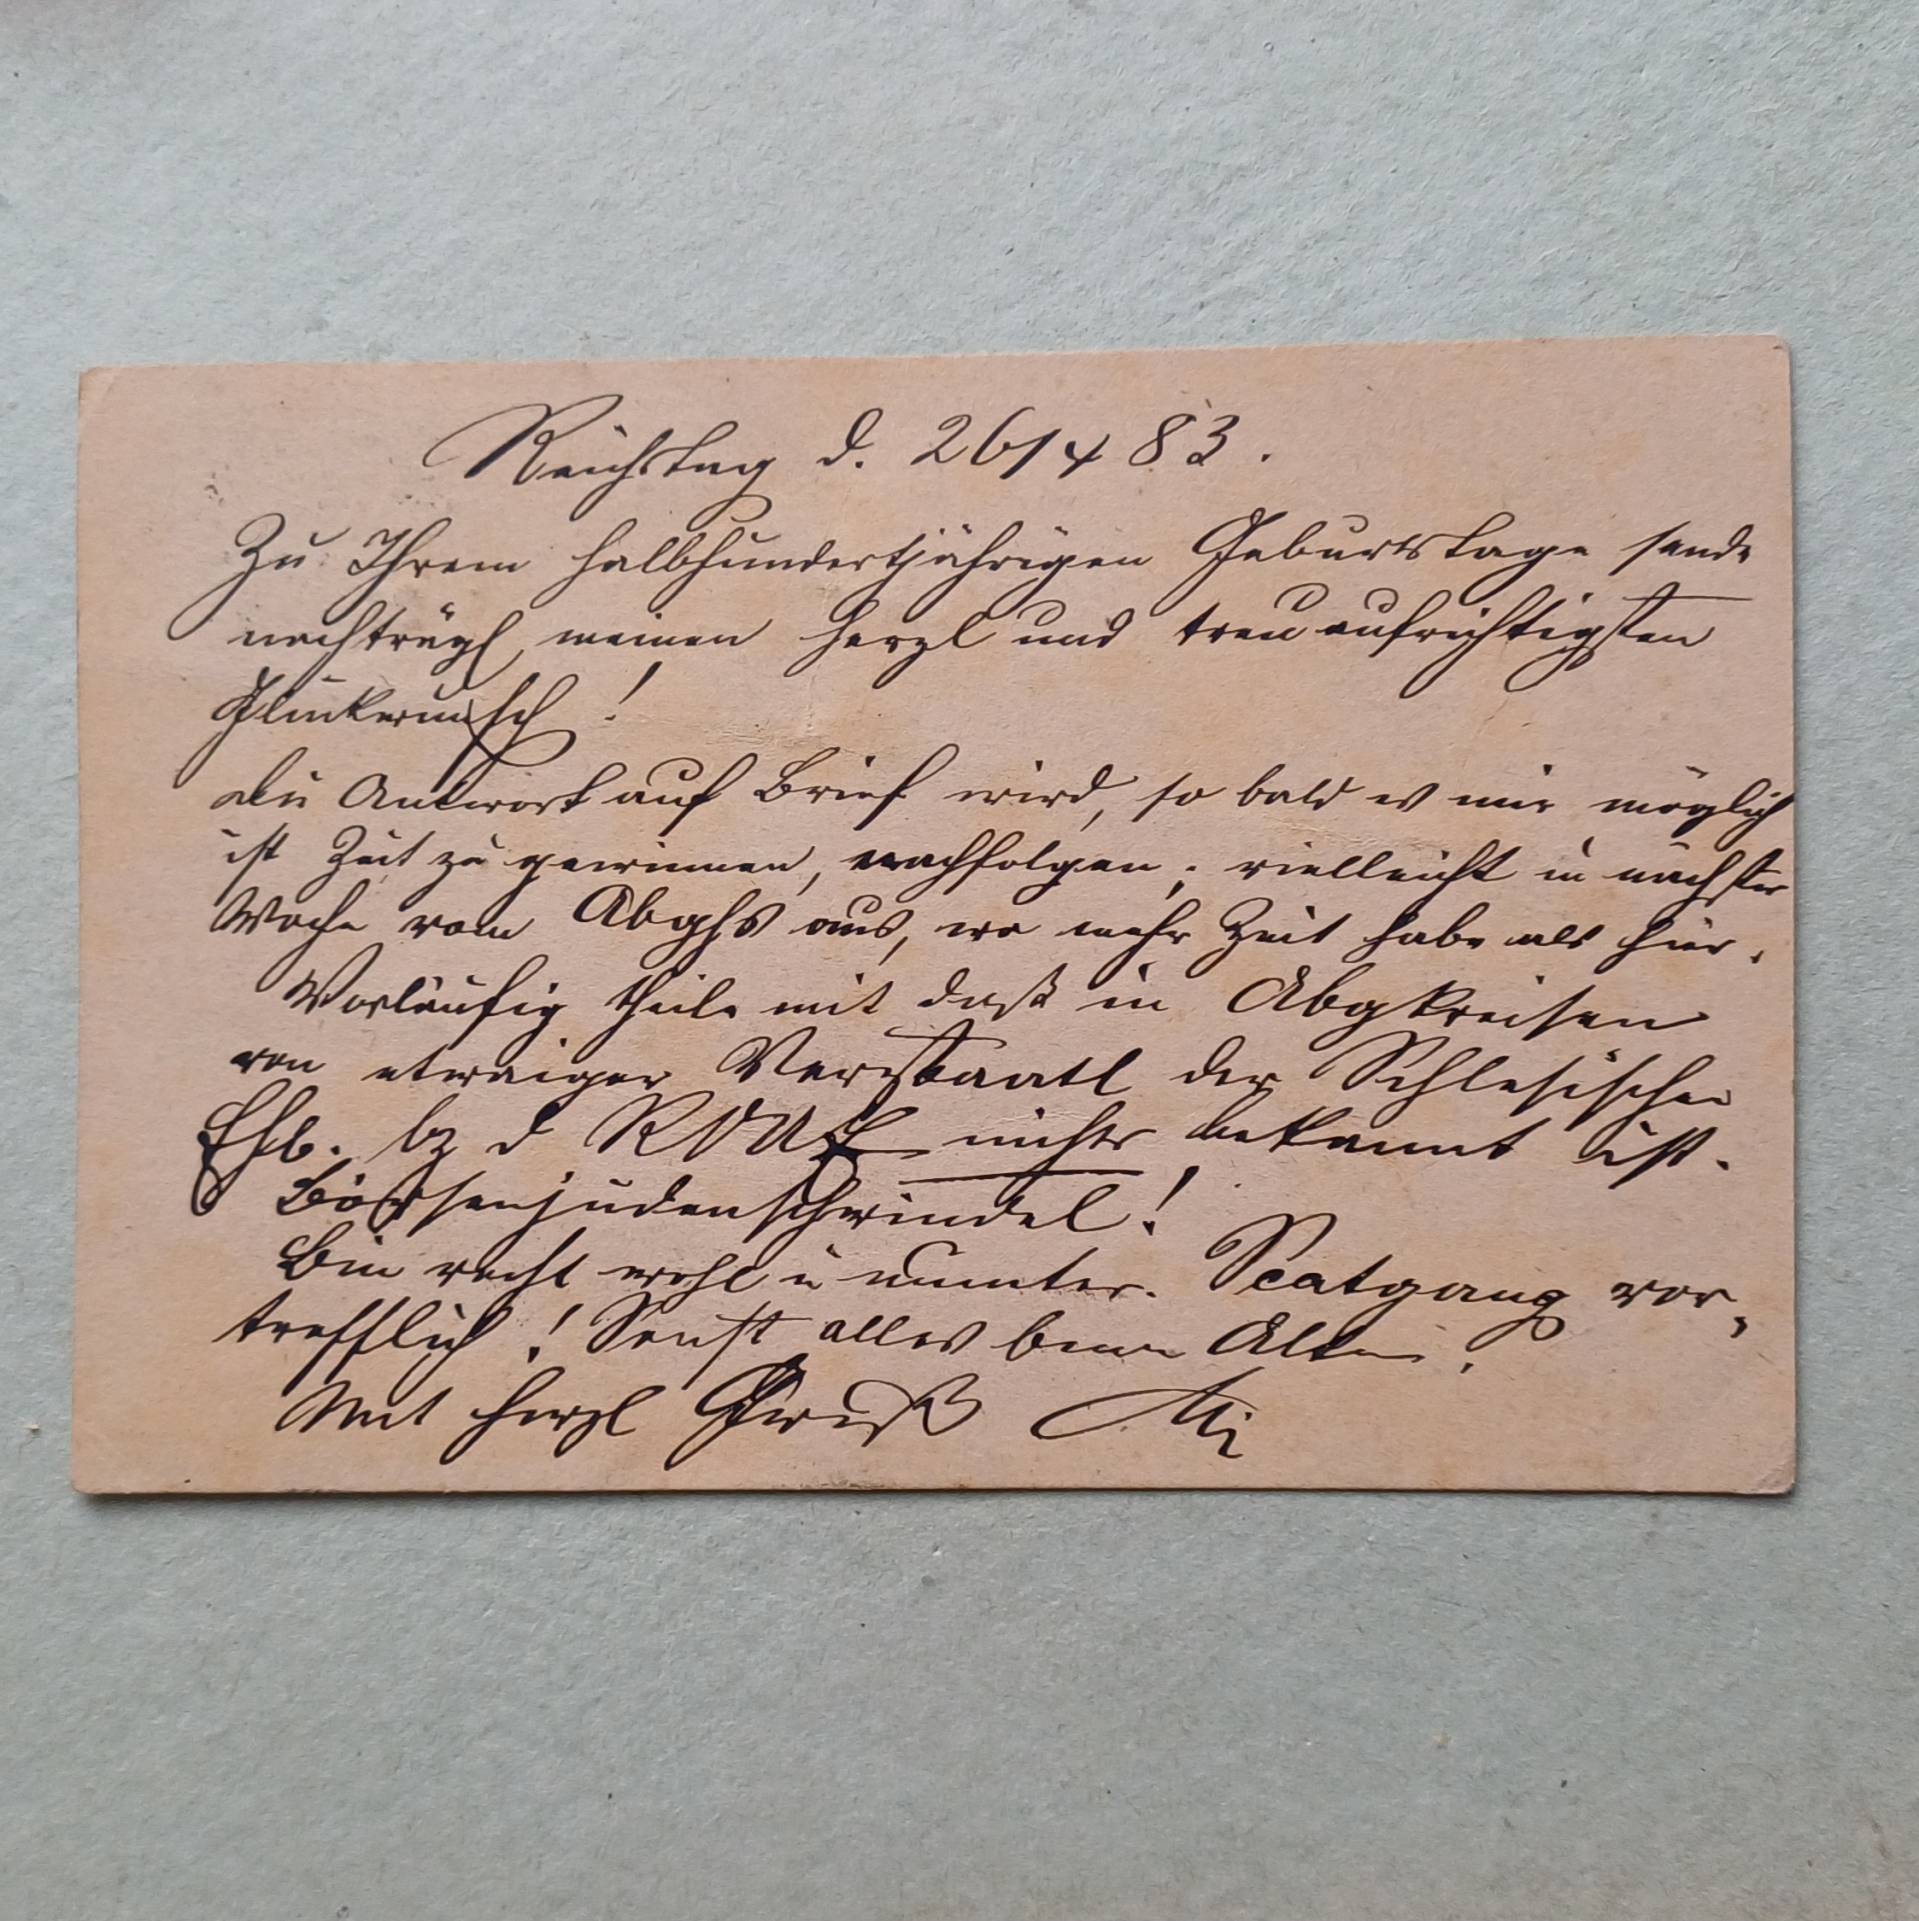 Reichstag d. 26/4 83.
Zu Ihrem halbhundertjährigen Geburtstage sende
nachträgl meinen herzl und treu aufrichtigsten
Glückwunsch!
Die Antwort auf Brief wird, so bald es mir möglich
ist Zeit zu gewinnen, nachfolgen; vielleicht in nächster
Woche vom Abghs aus, wo mehr Zeit habe als hier.
Vorläufig theile mit daß in Abgkreisen
von etwaiger Verstaatl der Schlesischen
Eisb. bz d ROUE nichts bekannt ist.
Börsenjudenschwindel!
Bin recht wohl u munter. Scatgang vor-
trefflich! Sonst alles beim Alten.
Mit herzl Gruß